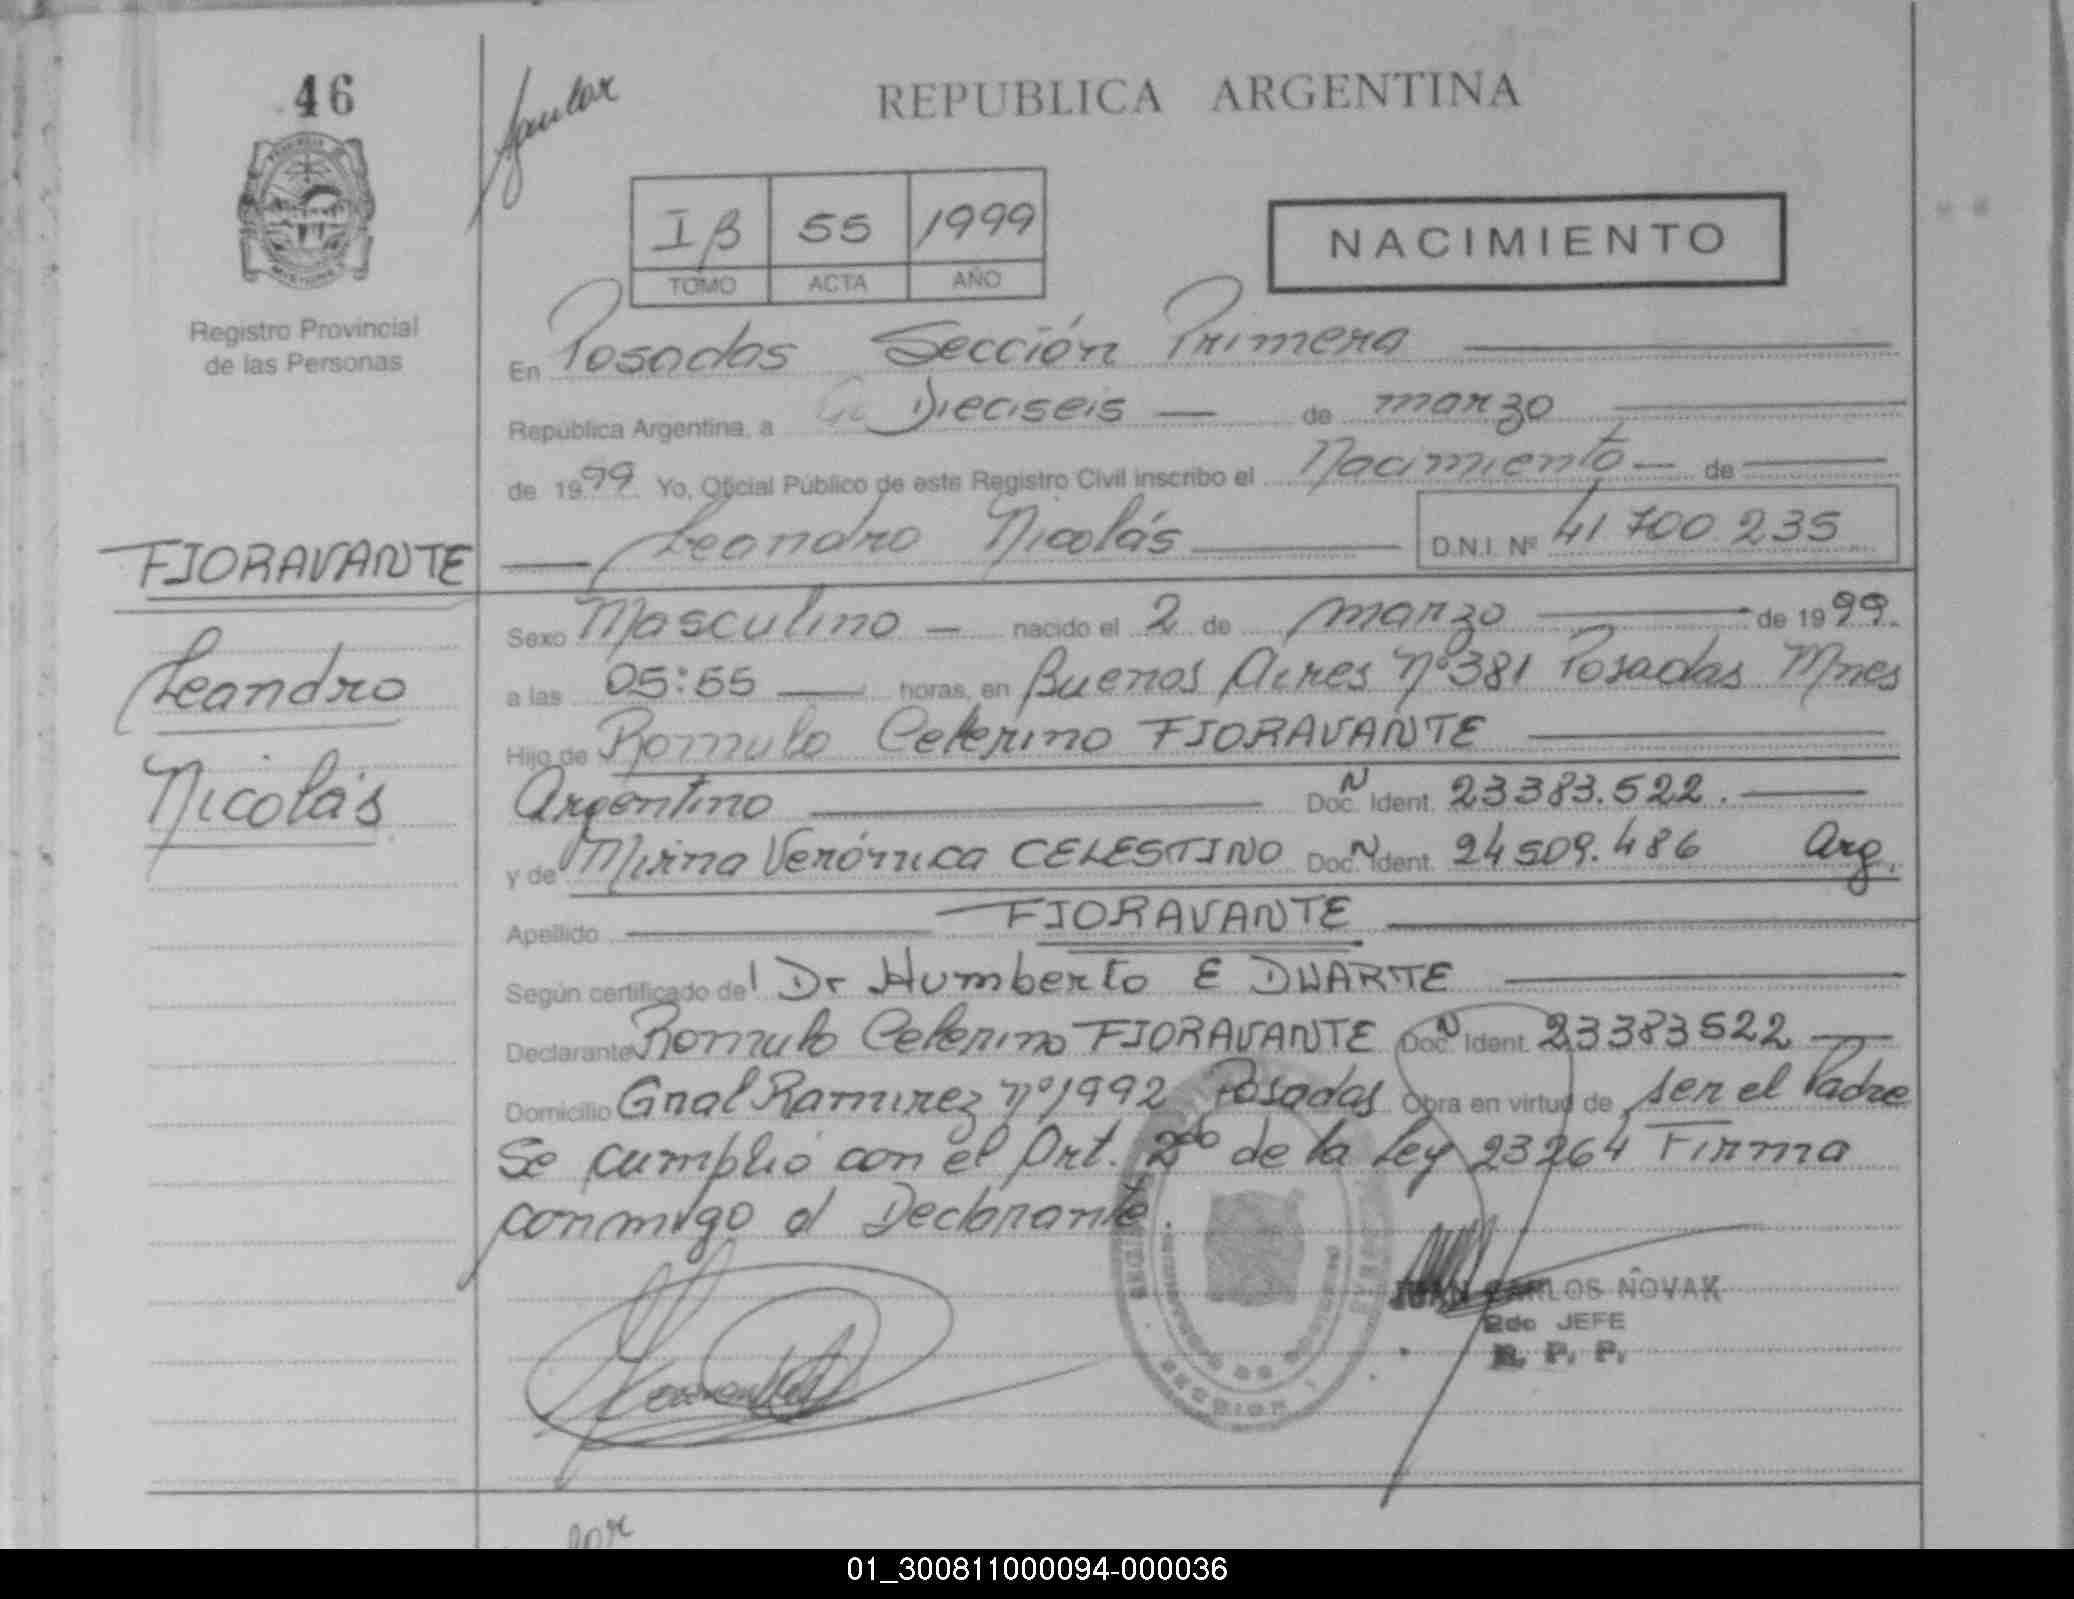 46
REPUBLICA ARGENTINA
I B 55 1999
TOMO ACTA AÑO
NACIMIENTO
Registro Provincial
de las Personas
En Posadas Sección Primera
República Argentina, a Dieciseis — de marzo
de 1999 Yo, Oficial Público de este Registro Civil inscribo el Nacimiento — de
Leandro Nicolás D.N.I. Nº 41 700 235
FIORAVANTE
Leandro
Nicolás
Sexo Masculino — nacido el 2 de marzo de 1999.
a las 05:55 horas, en Buenos Aires Nº 381 Posadas Mnes
Hijo de Romulo Ceferino FIORAVANTE
Argentino Doc. N Ident. 23383.522.
y de Mirna Verónica CELESTINO Doc. N Ident. 24509.486 Arg.
Apellido FIORAVANTE
Según certificado del Dr Humberto E DUARTE
Declarante Romulo Ceferino FIORAVANTE Doc. N Ident. 23383522
Domicilio Gral Ramirez Nº 1992 Posadas Obra en virtud de ser el Padre
Se cumplió con el Art. 2do de la Ley 23264 Firma
conmigo el Declarante.
JUAN CARLOS NOVAK
2do JEFE
R. P. P.
01_300811000094-000036